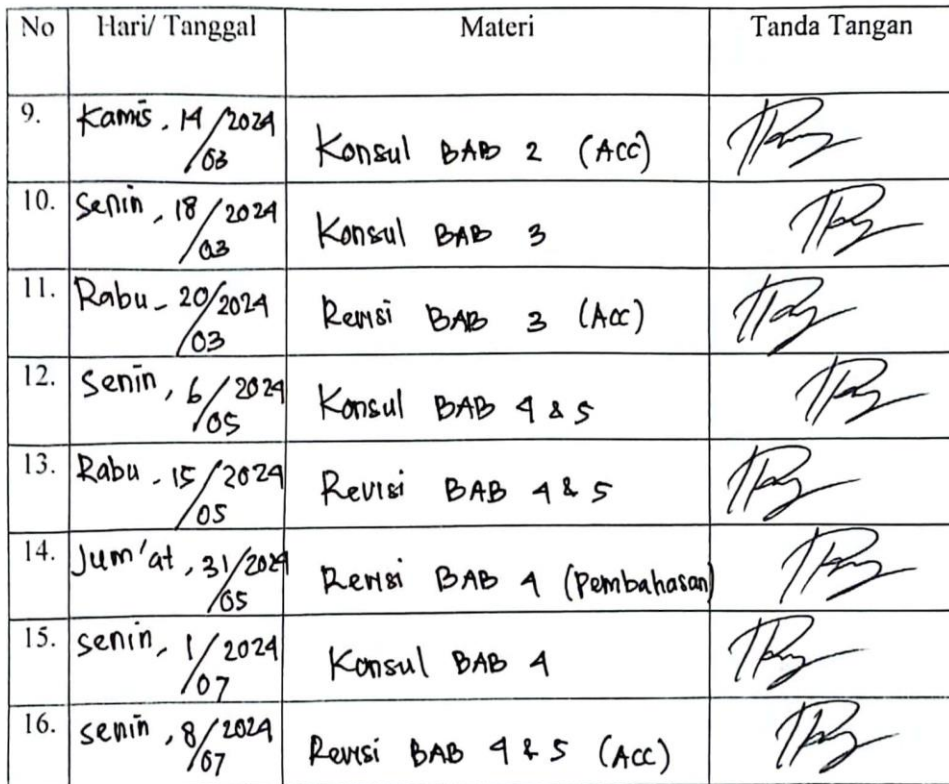 No Hari/ Tanggal Materi Tanda Tangan
9. Kamis, 14/03 2024 Konsul BAB 2 (Acc)
10. Senin, 18/03 2024 Konsul BAB 3
11. Rabu - 20/03 2024 Revisi BAB 3 (Acc)
12. Senin, 6/05 2024 Konsul BAB 4 & 5
13. Rabu - 15/05 2024 Revisi BAB 4 & 5
14. Jum'at, 31/05 2024 Revisi BAB 4 (Pembahasan)
15. senin, 1/07 2024 Konsul BAB 4
16. senin, 8/07 2024 Revisi BAB 4 & 5 (Acc)